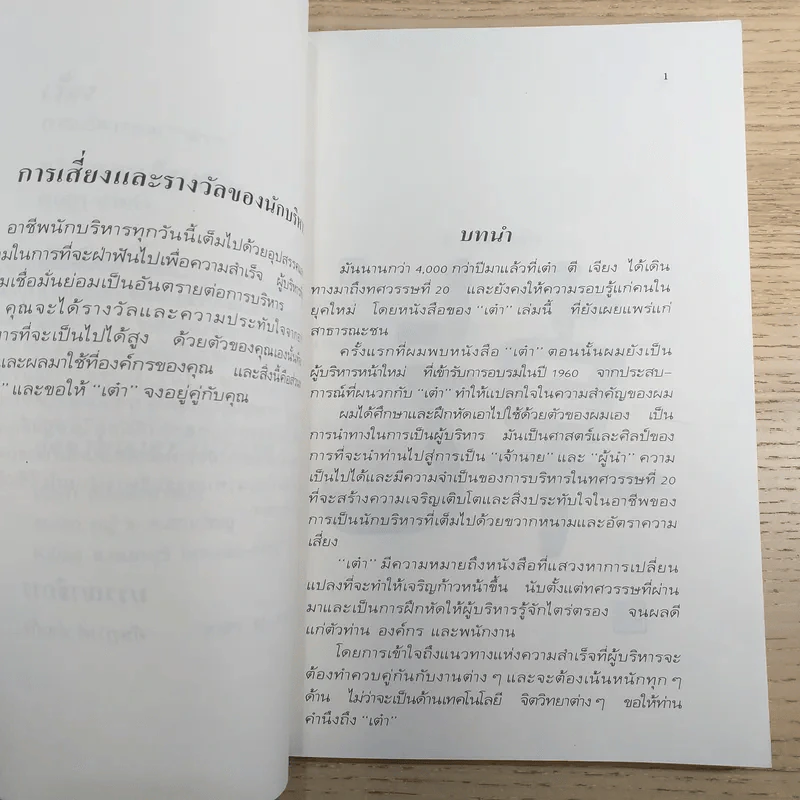 การเสี่ยงและรางวัลของนักบริหา
อาชีพนักบริหารทุกวันนี้เต็มไปด้วยอุปสรรค
มในการที่จะฝ่าฟันไปเพื่อความสำเร็จ ผู้บริหาร
มเชื่อมั่นย่อมเป็นอันตรายต่อการบริหาร
คุณจะได้รางวัลและความประทับใจจาก
ารที่จะเป็นไปได้สูง ด้วยตัวของคุณเองนั้น
และผลมาใช้ที่องค์กรของคุณ และสิ่งนี้คือ
" และขอให้ "เต๋า" จงอยู่คู่กับคุณ
1
บทนำ
มันนานกว่า 4,000 กว่าปีมาแล้วที่เต๋า ตี เจียง ได้เดิน
ทางมาถึงทศวรรษที่ 20 และยังคงให้ความรอบรู้แก่คนใน
ยุคใหม่ โดยหนังสือของ "เต๋า" เล่มนี้ ที่ยังเผยแพร่แก่
สาธารณะชน
ครั้งแรกที่ผมพบหนังสือ "เต๋า" ตอนนั้นผมยังเป็น
ผู้บริหารหน้าใหม่ ที่เข้ารับการอบรมในปี 1960 จากประสบ-
การณ์ที่ผนวกกับ "เต๋า" ทำให้แปลกใจในความสำคัญของผม
ผมได้ศึกษาและฝึกหัดเอาไปใช้ด้วยตัวของผมเอง เป็น
การนำทางในการเป็นผู้บริหาร มันเป็นศาสตร์และศิลป์ของ
การที่จะนำท่านไปสู่การเป็น "เจ้านาย" และ "ผู้นำ" ความ
เป็นไปได้และมีความจำเป็นของการบริหารในทศวรรษที่ 20
ที่จะสร้างความเจริญเติบโตและสิ่งประทับใจในอาชีพของ
การเป็นนักบริหารที่เต็มไปด้วยขวากหนามและอัตราความ
เสี่ยง
"เต๋า" มีความหมายถึงหนังสือที่แสวงหาการเปลี่ยน
แปลงที่จะทำให้เจริญก้าวหน้าขึ้น นับตั้งแต่ทศวรรษที่ผ่าน
มาและเป็นการฝึกหัดให้ผู้บริหารรู้จักไตร่ตรอง จนผลดี
แก่ตัวท่าน องค์กร และพนักงาน
โดยการเข้าใจถึงแนวทางแห่งความสำเร็จที่ผู้บริหารจะ
ต้องทำควบคู่กันกับงานต่าง ๆ และจะต้องเน้นหนักทุก ๆ
ด้าน ไม่ว่าจะเป็นด้านเทคโนโลยี จิตวิทยาต่าง ๆ ขอให้ท่าน
คำนึงถึง "เต๋า"